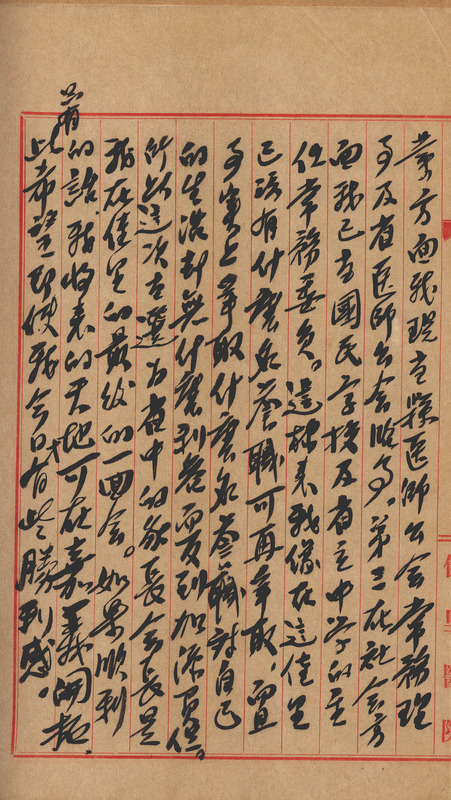 業方面我現當縣醫師公會常務理
事及省醫師公會監事。第三在社會方
面我已當國民學校及省立中學的主
任常務委員。這樣來我像在這佳里
已該有什麼名譽職可再爭取，而且
事實上爭取什麼名譽職對自己
的生活却無什麼利益而反到加添負擔。
所以這次當選為省中的家長會長是
我在佳里的最後的一回會。如果順利
的話，我將來的天地可在嘉義開拓，
只有此希望即使我今日才有些勝利感。
佳里醫院